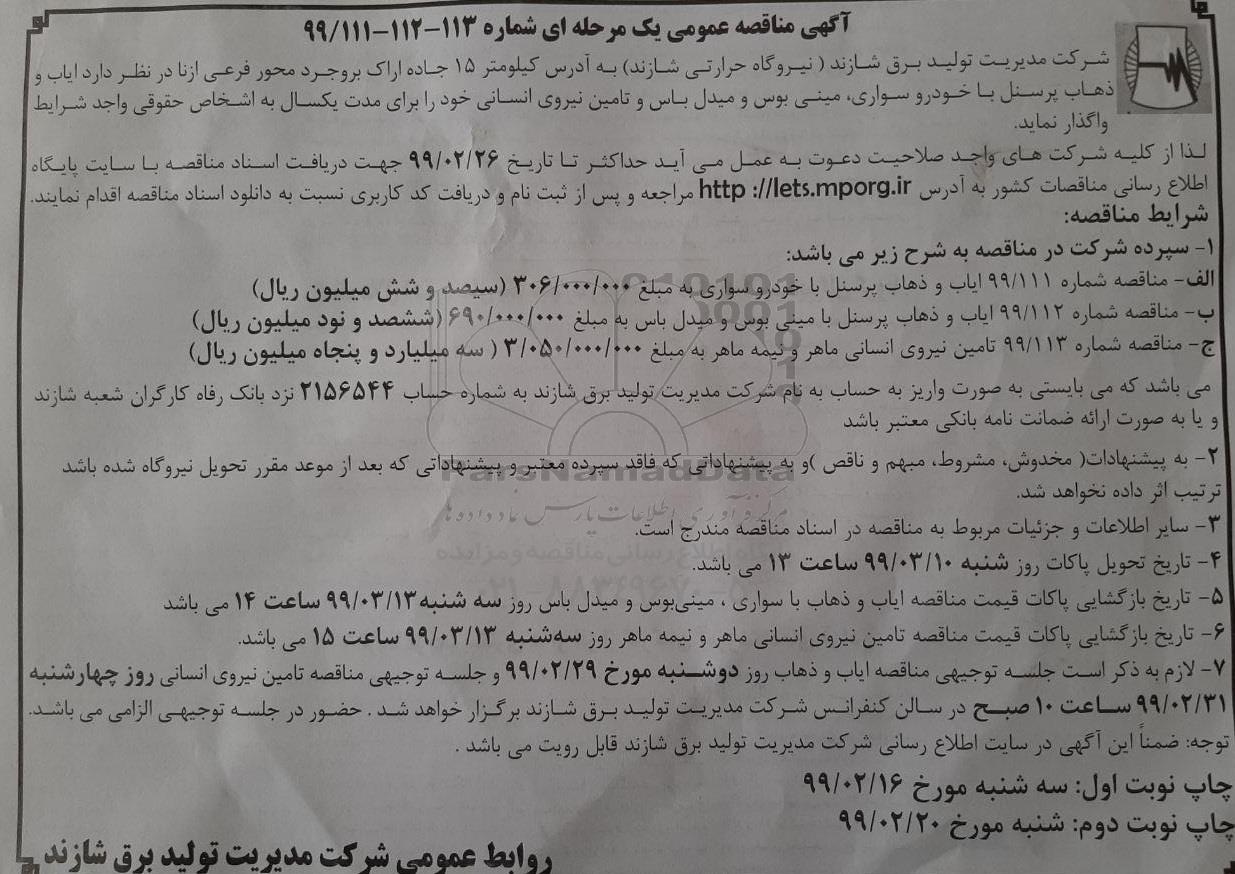 آگهی مناقصه عمومی یک مرحله ای شماره ۱۱۳-۱۱۲-۹۹/۱۱۱
شرکت مدیریت تولید برق شازند ( نیروگاه حرارتی شازند) به آدرس کیلومتر ۱۵ جاده اراک بروجرد محور فرعی ازنا در نظر دارد ایاب و
ذهاب پرسنل با خودرو سواری، مینی بوس و میدل باس و تامین نیروی انسانی خود را برای مدت یکسال به اشخاص حقوقی واجد شرایط
واگذار نماید.
لذا از کلیه شرکت های واجد صلاحیت دعوت به عمل می آید حداکثر تا تاریخ ۹۹/۰۲/۲۶ جهت دریافت اسناد مناقصه با سایت پایگاه
اطلاع رسانی مناقصات کشور به آدرس http ://iets.mporg.ir مراجعه و پس از ثبت نام و دریافت کد کاربری نسبت به دانلود اسناد مناقصه اقدام نمایند.
شرایط مناقصه:
۱- سپرده شرکت در مناقصه به شرح زیر می باشد:
الف- مناقصه شماره ۹۹/۱۱۱ ایاب و ذهاب پرسنل با خودرو سواری به مبلغ ۳۰۶/۰۰۰/۰۰۰ (سیصد و شش میلیون ریال)
ب- مناقصه شماره ۹۹/۱۱۲ ایاب و ذهاب پرسنل با مینی بوس و میدل باس به مبلغ ۶۹۰/۰۰۰/۰۰۰ (ششصد و نود میلیون ریال)
ج- مناقصه شماره ۹۹/۱۱۳ تامین نیروی انسانی ماهر و نیمه ماهر به مبلغ ۳/۰۵۰/۰۰۰/۰۰۰ ( سه میلیارد و پنجاه میلیون ریال)
می باشد که می بایستی به صورت واریز به حساب به نام شرکت مدیریت تولید برق شازند به شماره حساب ۲۱۵۶۵۴۴ نزد بانک رفاه کارگران شعبه شازند
و یا به صورت ارائه ضمانت نامه بانکی معتبر باشد
۲- به پیشنهادات( مخدوش، مشروط، مبهم و ناقص )و به پیشنهاداتی که فاقد سپرده معتبر و پیشنهاداتی که بعد از موعد مقرر تحویل نیروگاه شده باشد
ParsNamadData
ترتیب اثر داده نخواهد شد.
۳- سایر اطلاعات و جزئیات مربوط به مناقصه در اسناد مناقصه مندرج است.
۴- تاریخ تحویل پاکات روز شنبه ۹۹/۰۳/۱۰ ساعت ۱۳ می باشد.
۵- تاریخ بازگشایی پاکات قیمت مناقصه ایاب و ذهاب با سواری ، مینی‌بوس و میدل باس روز سه شنبه۹۹/۰۳/۱۳ ساعت ۱۴ می باشد
۶- تاریخ بازگشایی پاکات قیمت مناقصه تامین نیروی انسانی ماهر و نیمه ماهر روز سه‌شنبه ۹۹/۰۳/۱۳ ساعت ۱۵ می باشد.
۷- لازم به ذکر است جلسه توجیهی مناقصه ایاب و ذهاب روز دوشنبه مورخ ۹۹/۰۲/۲۹ و جلسه توجیهی مناقصه تامین نیروی انسانی روز چهارشنبه
۹۹/۰۲/۳۱ ساعت ۱۰ صبح در سالن کنفرانس شرکت مدیریت تولید برق شازند برگزار خواهد شد . حضور در جلسه توجیهی الزامی می باشد.
توجه: ضمناً این آگهی در سایت اطلاع رسانی شرکت مدیریت تولید برق شازند قابل رویت می باشد .
چاپ نوبت اول: سه شنبه مورخ ۹۹/۰۲/۱۶
چاپ نوبت دوم: شنبه مورخ ۹۹/۰۲/۲۰
روابط عمومی شرکت مدیریت تولید برق شازند